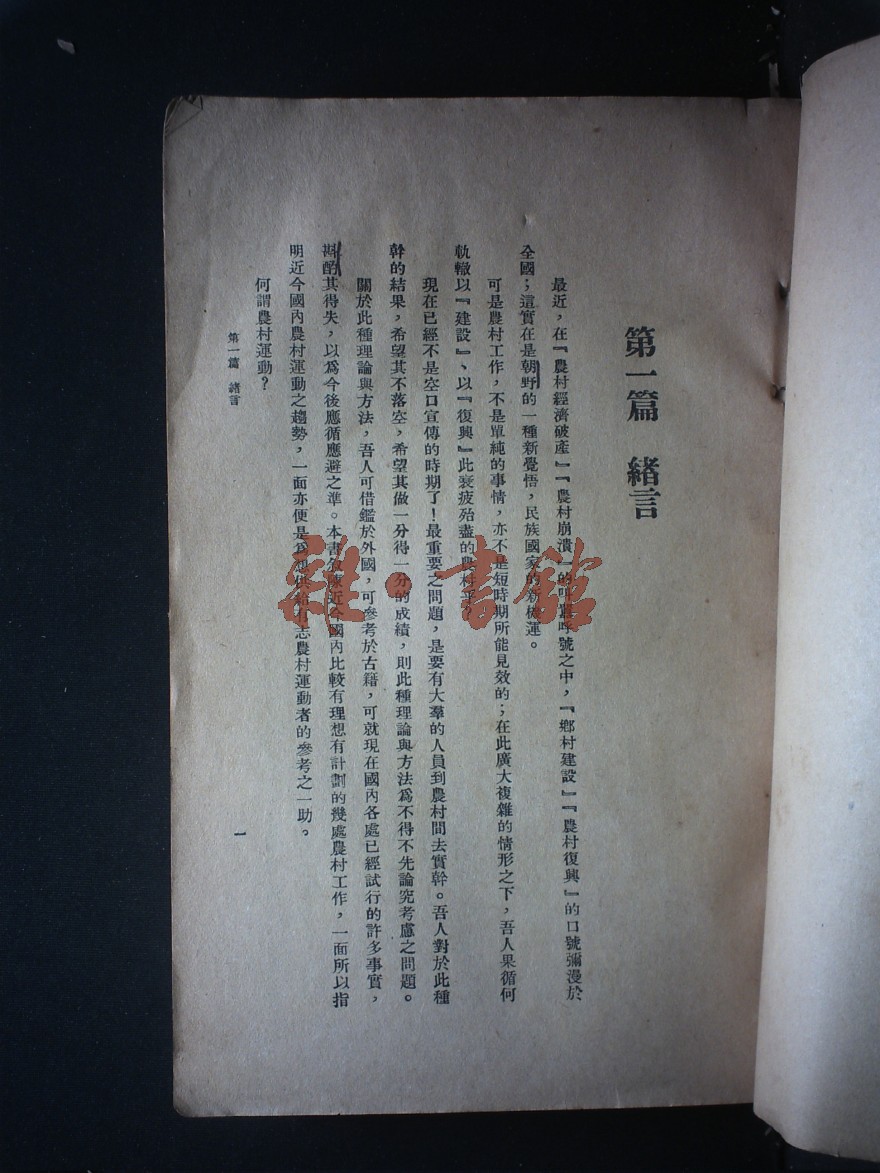 第一篇 緒言
最近，在『農村經濟破產』『農村崩潰』的叫囂呼號之中，『鄉村建設』『農村復興』的口號彌漫於
全國；這實在是朝野的一種新覺悟，民族國家的新機運。
可是農村工作，不是單純的事情，亦不是短時期所能見效的；在此廣大複雜的情形之下，吾人果循何
軌轍以『建設』、以『復興』此衰疲殆盡的農村乎？
現在已經不是空口宣傳的時期了！最重要之問題，是要有大羣的人員到農村間去實幹。吾人對於此種
幹的結果，希望其不落空，希望其做一分得一分的成績，則此種理論與方法爲不得不先論究考慮之問題。
關於此種理論與方法，吾人可借鑑於外國，可參考於古籍，可就現在國內各處已經試行的許多事實，
斟酌其得失，以爲今後應循應避之準。本書敘陳近今國內比較有理想有計劃的幾處農村工作，一面所以指
明近今國內農村運動之趨勢，一面亦便是爲想供給有志農村運動者的參考之一助。
何謂農村運動？
第一篇 緒言
一
雜·書館